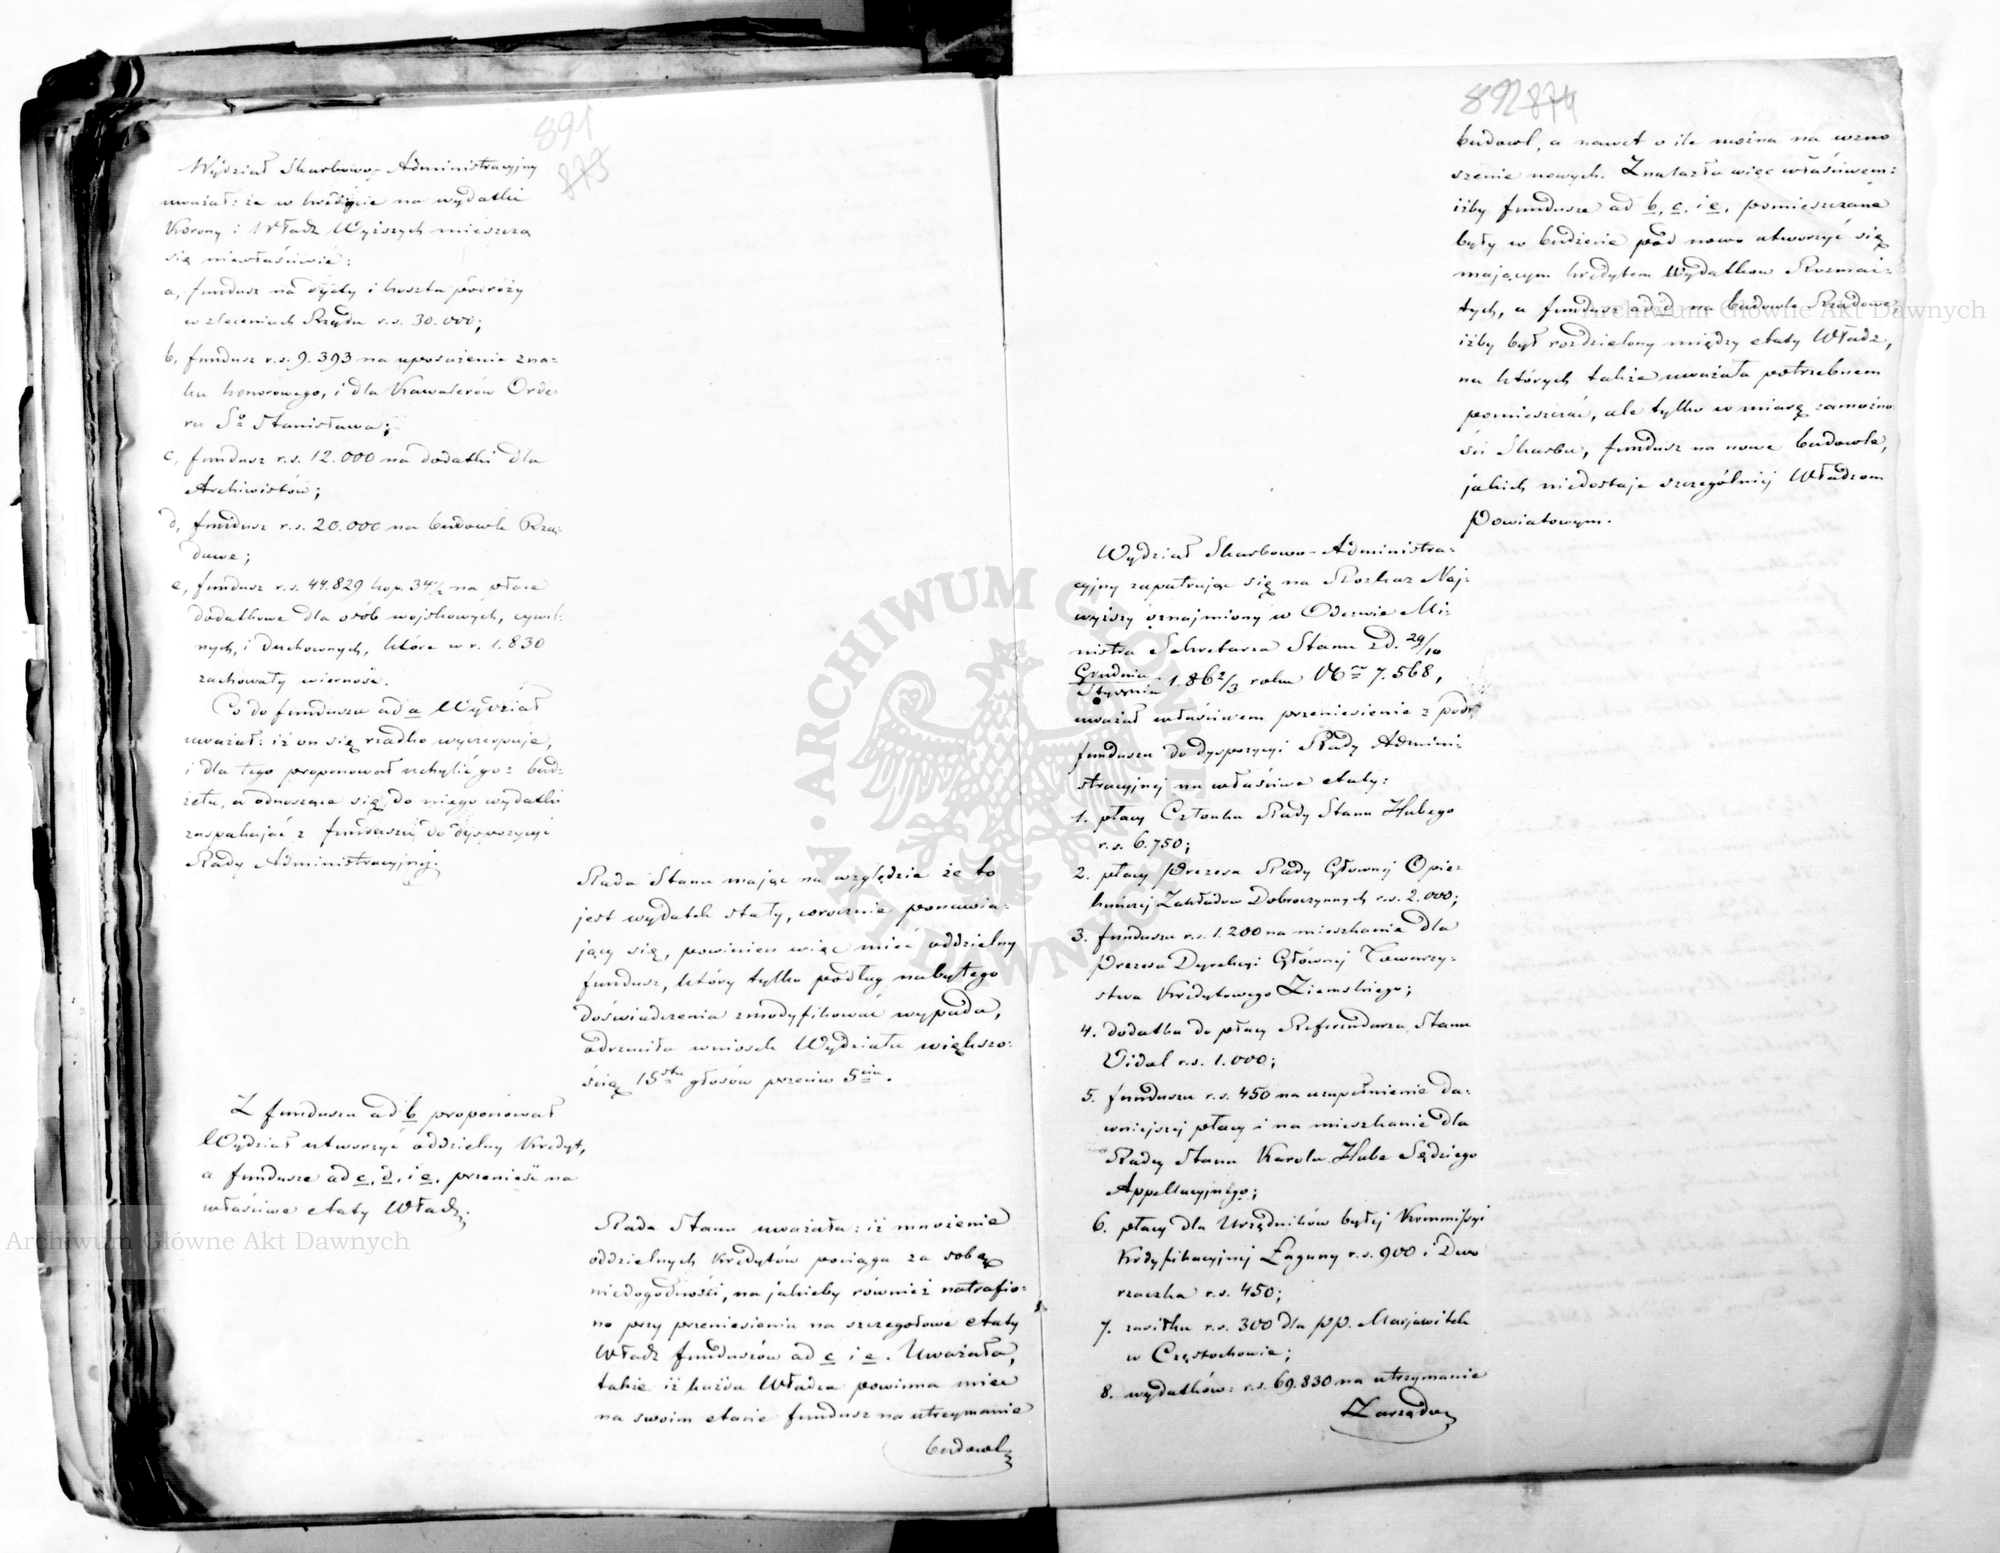 891
873
Wydział Skarbowo-Administracyjny
uważał: że w kredycie na wydatki
Korony i Władz Wyższych mieszczą
się niewłaściwie:
a, fundusz na dyety i koszta podróży
w zleceniach Rządu r.s. 30.000;
b, fundusz r.s. 9.393 na uposażenie zna=
ku honorowego, i dla Kawalerów Orde=
ru Sgo Stanisława;
c, fundusz r.s. 12.000 na dodatki dla
Archiwistów;
d, fundusz r.s. 20.000 na budowle Rzą=
dowe;
e, fundusz r.s. 44.829 kop. 34 1/2 na płace
dodatkowe dla osób wojskowych, cywil=
nych, i duchownych, które w r. 1.830
zachowały wierność.
Co do funduszu ad a Wydział
uważał: iż on się rzadko wyczerpuje,
i dla tego proponował uchylić go z bud=
żetu, a odnoszące się do niego wydatki
zaspakajać z funduszu do dyspozycyi
Rady Administracyjnej.
Rada Stanu mając na względzie że to
jest wydatek stały, corocznie ponawia=
jący się, powinien więc mieć oddzielny
fundusz, który tylko podług nabytego
doświadczenia zmodyfikować wypada,
odrzuciła wniosek Wydziału większo=
ścią 15stu głosów przeciw 5ciu.
Z funduszu ad b proponował
Wydział utworzyć oddzielny Kredyt,
a fundusze ad c, d, i e, przenieść na
właściwe etaty Władz.
Rada Stanu uważała: iż mnożenie
oddzielnych Kredytów pociąga za sobą
niedogodności, na jakieby również natrafio=
no przy przeniesieniu na szczegołowe etaty
Władz funduszów ad c i e. Uważała,
także iż każda Władza powinna mieć
na swoim etacie fundusz na utrzymanie
budowl
892 874
budowl, a nawet o ile można na wzno
szenie nowych. Znalazła więc właściwem:
iżby fundusze ad b, c, i e, pomieszczone
były w budżecie pod nowo utworzyć się
mającym kredytem Wydatków Rozmai=
tych, a fundusz ad d na budowle Rządowe,
iżby był rozdzielony między etaty Władz,
na których także uważała potrzebnem
pomieszczać, ale tylko w miarę zamożno=
ści Skarbu, fundusz na nowe budowle,
jakich niedostaje szczególniej Władzom
Powiatowym.
Wydział Skarbowo-Administra=
cyjny zapatrując się na Rozkaz Naj=
wyższy oznajmiony w Odezwie Mi=
nistra Sekretarza Stanu z d. 29/10
Grudnia
Stycznia 1.862/3 roku No 7.568,
uważał właściwem przeniesienie z pod
funduszu do dyspozycyi Rady Admini=
stracyjnej na właściwe etaty:
1. płacy Członka Rady Stanu Hubego
r.s. 6.750;
2. płacy Prezesa Rady Głównej Opie=
kuńczej Zakładów Dobroczynnych r.s. 2.000;
3. funduszu r.s. 1.200 na mieszkanie dla
Prezesa Dyrekcyi Głównej Towarzy=
stwa Kredytowego Ziemskiego;
4. dodatku do płacy Referendarza Stanu
Vidal r.s. 1.000;
5. funduszu r.s. 450 na uzupełnienie da=
wniejszej płacy i na mieszkanie dla
Radcy Stanu Karola Hube Sędziego
Appellacyjnego;
6. płacy dla Urzędników byłej Kommissyi
Kodyfikacyjnej Łaguny r.s. 900 i Dwo
rzaczka r.s. 450;
7. zasiłku r.s. 300 dla pp. Marjawitek
w Częstochowie;
8. wydatków: r.s. 69.830 na utrzymanie
Zarządu
ARCHIWUM GŁÓWNE AKT DAWNYCH
Archiwum Główne Akt Dawnych
Archiwum Główne Akt Dawnych